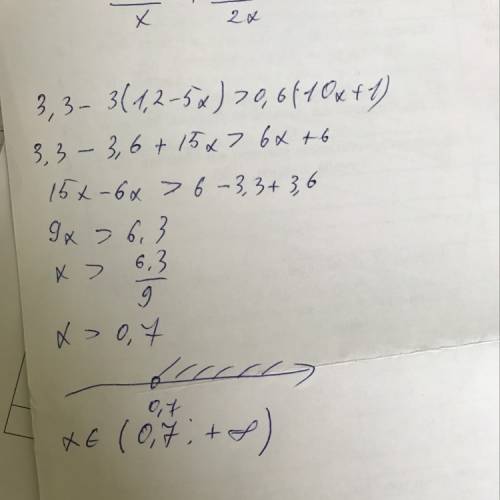 x 2x
3,3 - 3(1,2-5x) > 0,6(10x+1)
3,3 - 3,6 + 15x > 6x + 6
15x - 6x > 6 - 3,3 + 3,6
9x > 6,3
x > 6,3/9
x > 0,7
0,7
x ∈ (0,7; +∞)